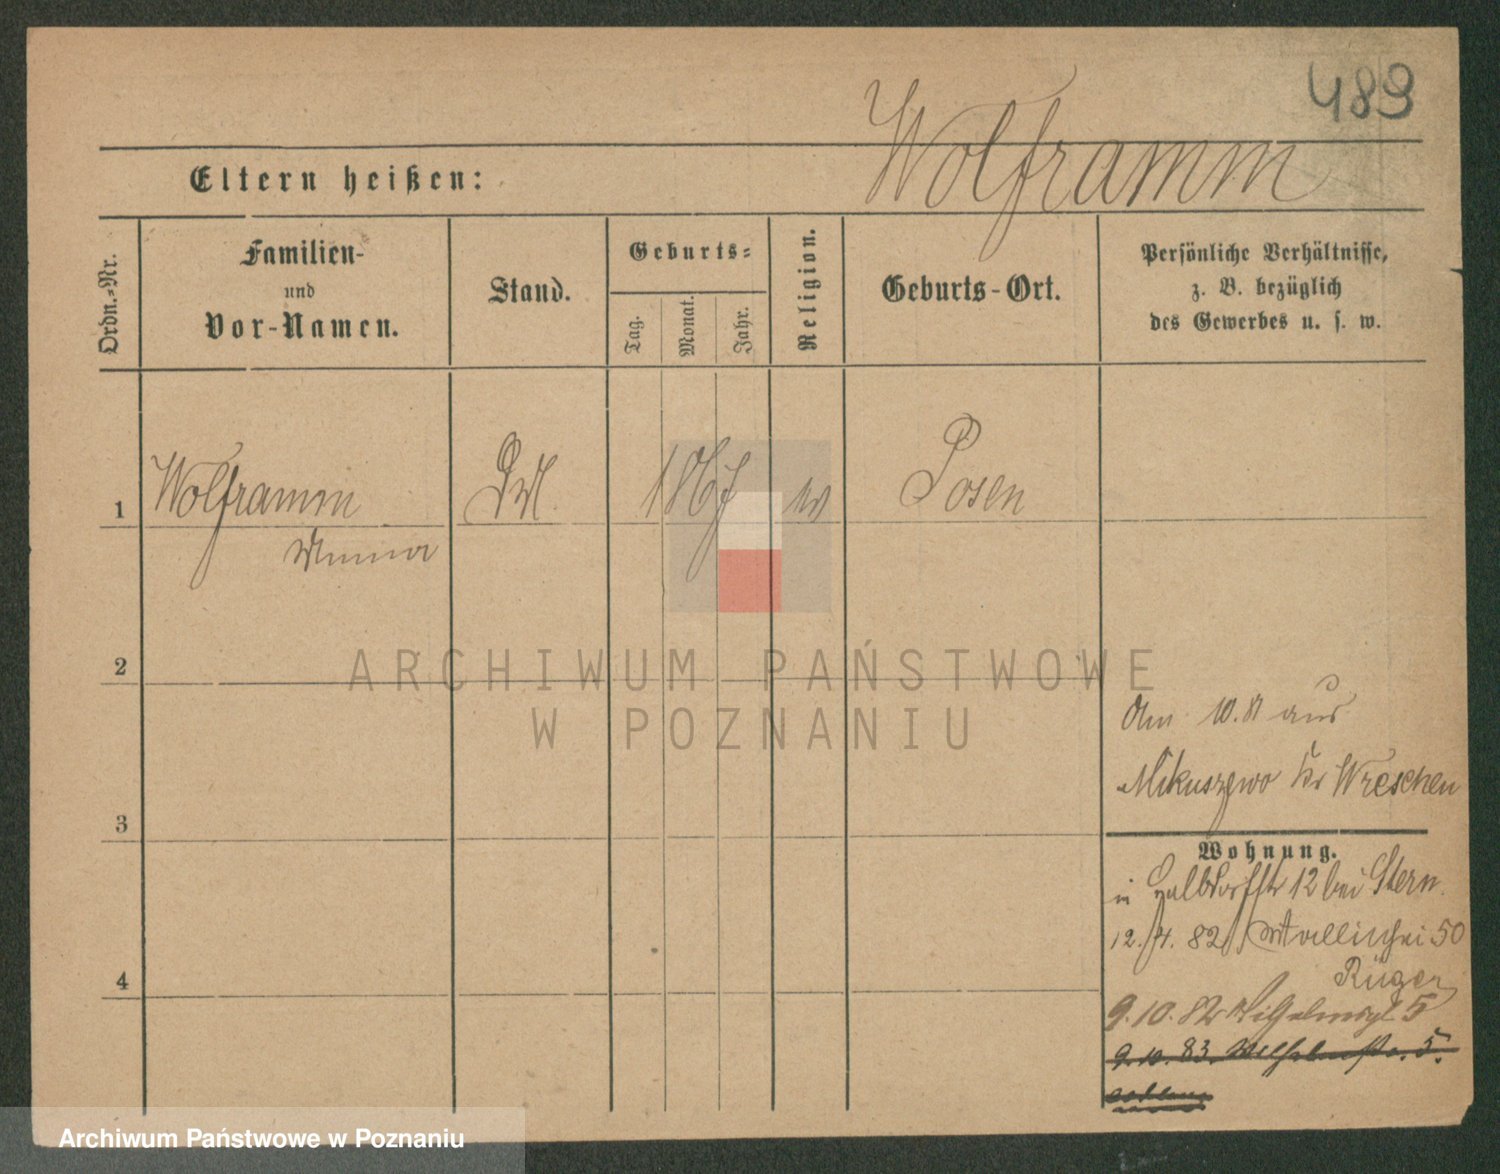 489
Wolframm
Eltern heißen:
Ordn.-Nr.
Familien-
und
Vor-Namen.
Stand.
Geburts-
Tag.
Monat.
Jahr.
Religion.
Geburts-Ort.
Persönliche Verhältnisse,
z. B. bezüglich
des Gewerbes u. s. w.
1 Wolframm 1867 Posen
2
ARCHIWUM PAŃSTWOWE
W POZNANIU
Am 10.81 aus
Mikuszewo Kr Wreschen
3
Wohnung.
in Halbdorfstr 12 bei Stern.
12. 4. 82 50
Rüger
4
9. 10. 82 5
9. 10. 83. Wilhelmstr. 5.
Archiwum Państwowe w Poznaniu